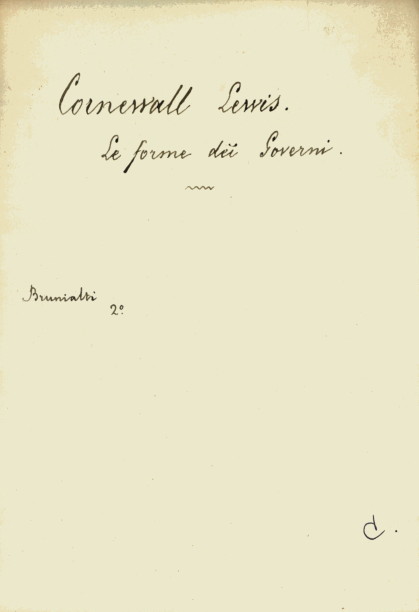 Cornewall Lewis.
Le forme dei Governi.
Brunialti
2º
C.